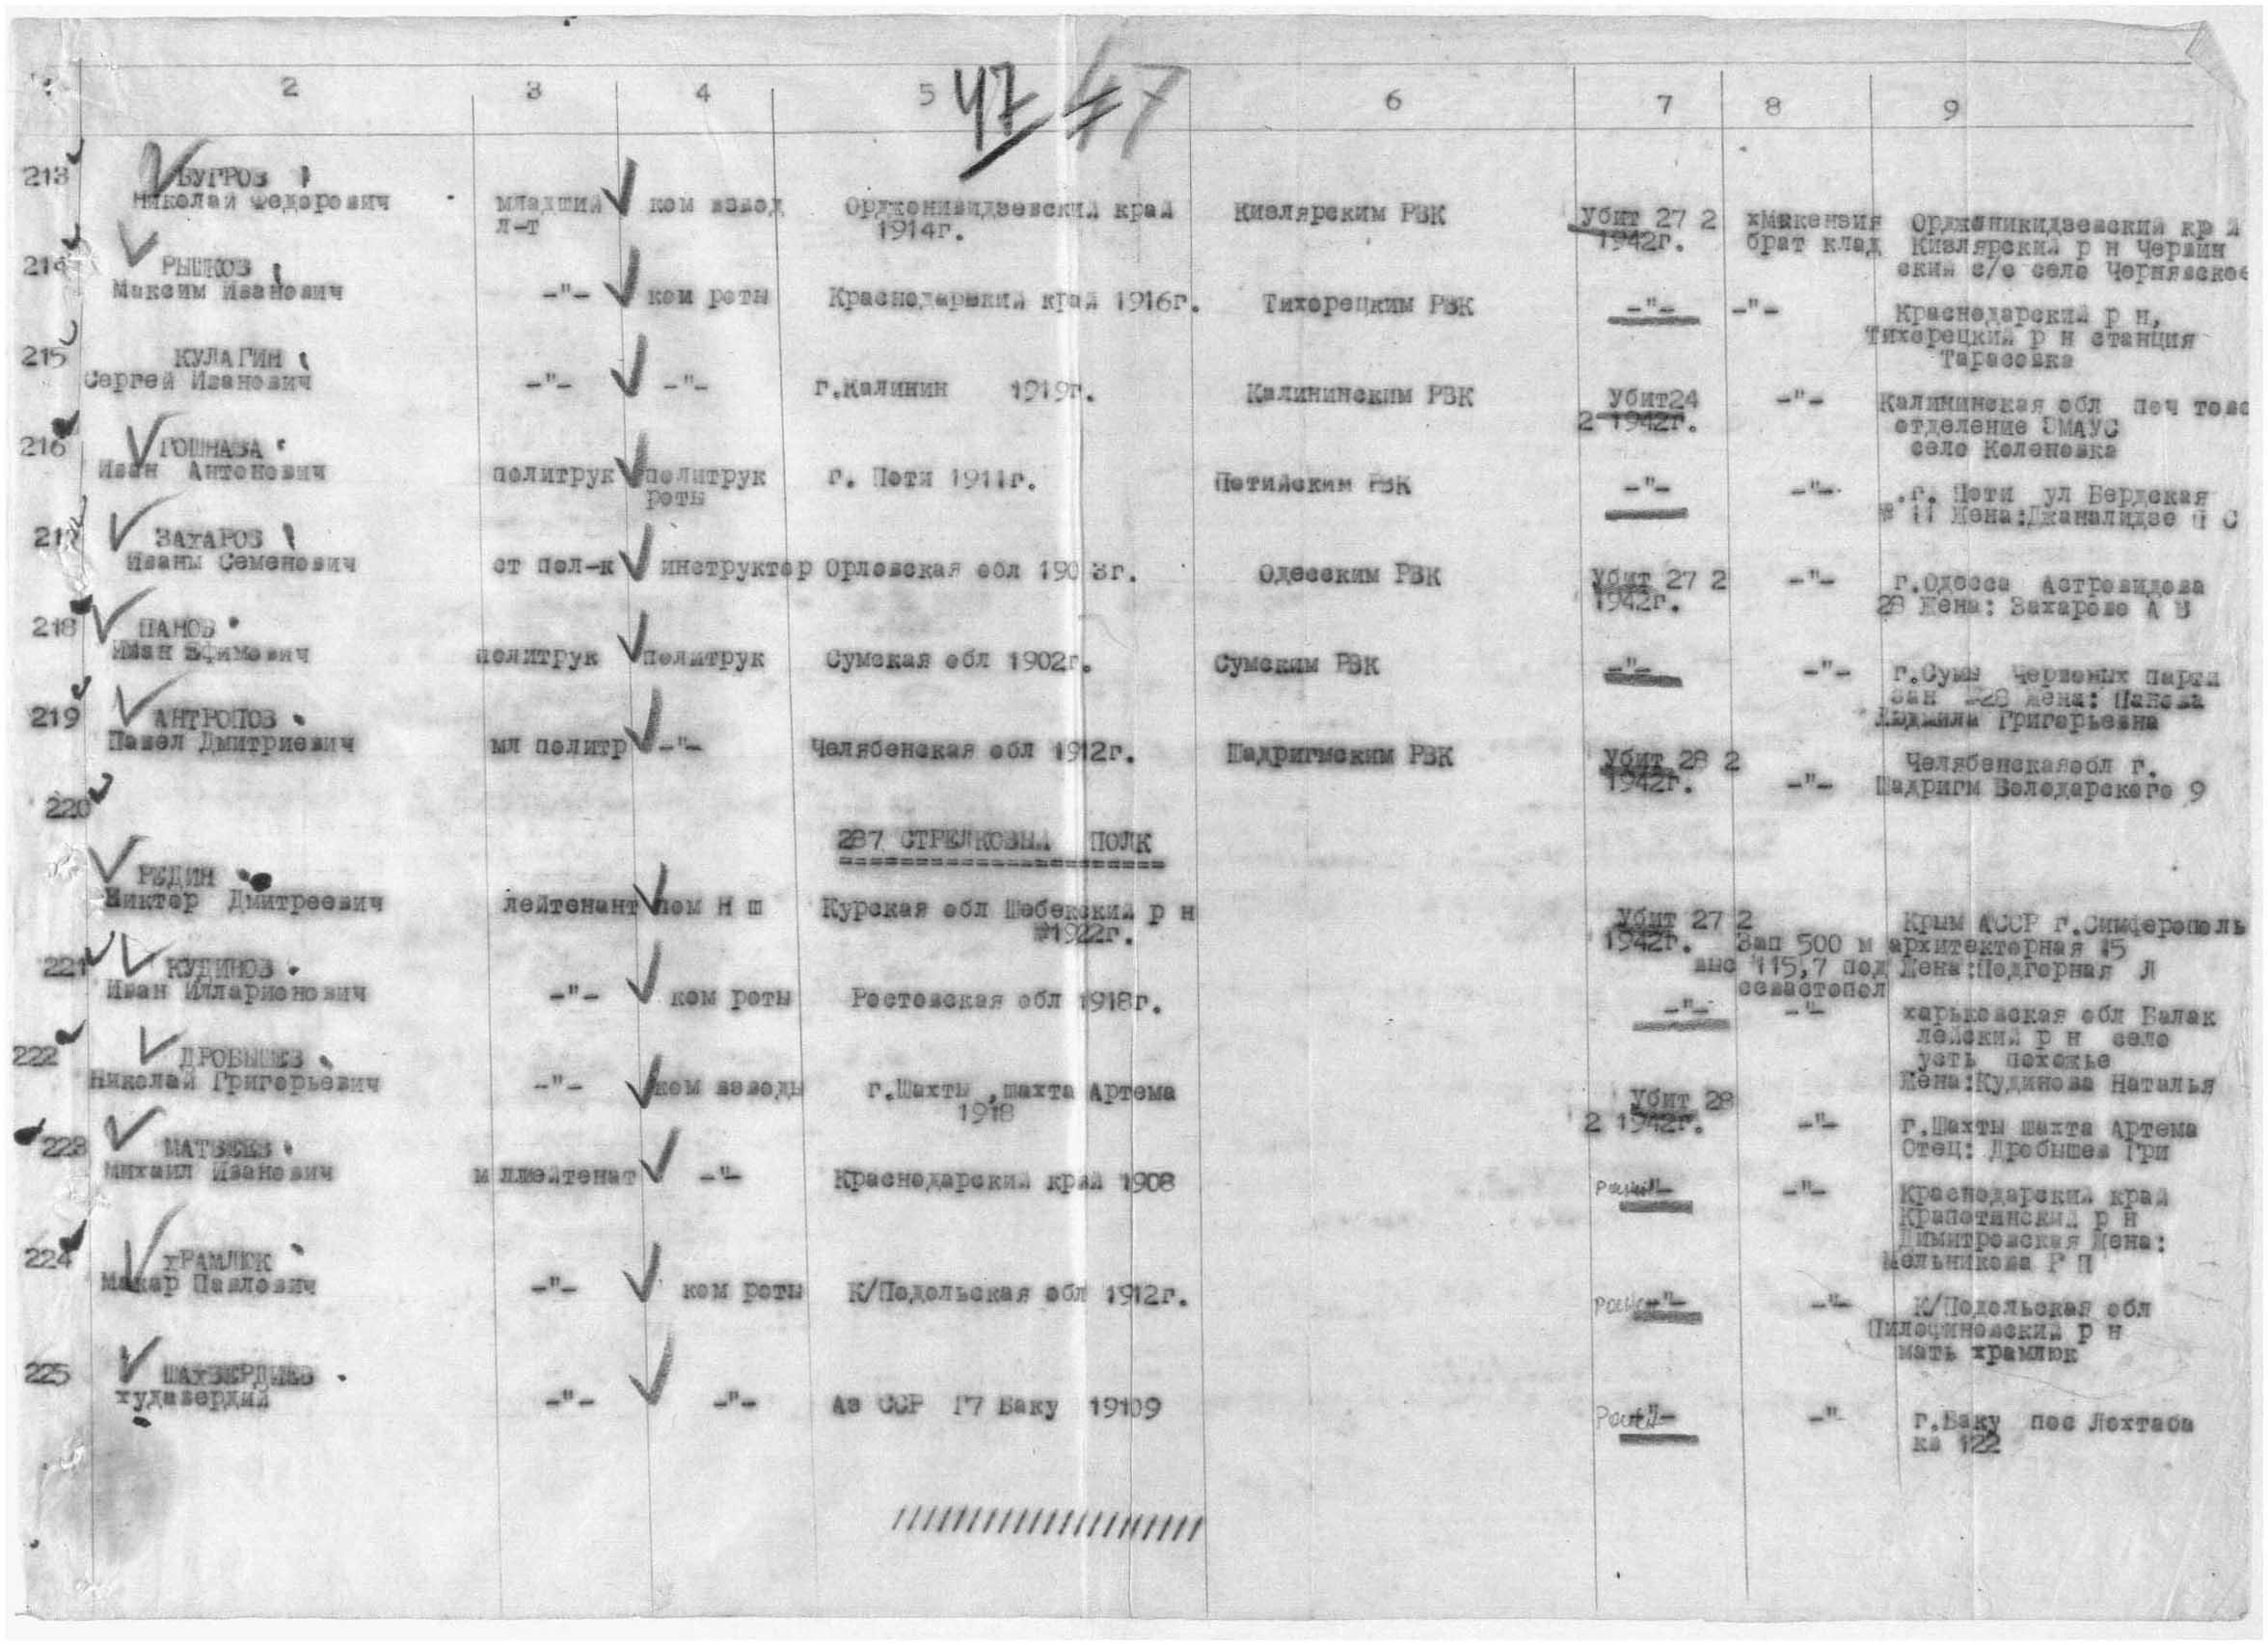 2 3 4 5 6 7 8 9
47 47
213 БУГРОВ
Николай Федорович младший ком взвод Орджоникидзевский край Кизлярским РВК Убит 27 2 хМакензия Орджоникидзевский кр й
л-т 1914г. 1942г. брат клад Кизлярский р н Червин
ский с/с село Чернявское
214 РЫШКОВ
Максим Иванович -"- ком роты Краснодарский край 1916г. Тихорецким РВК -"- -"- Краснодарский р н,
Тихорецкий р н станция
Тарасовка
215 КУЛАГИН
Сергей Иванович -"- -"- г.Калинин 1919г. Калининским РВК Убит24 -"- Калининская обл поч
2 1942г. отделение
село Коленовка
216 ГОШНАВА
Иван Антонович политрук политрук г. Поти 1911г. Потийским РВК -"- -"- г. Поти ул Бердская
роты № 11 Жена:Джаналидзе
217 ЗАХАРОВ
Иваны Семенович ст пол-к инструктор Орловская обл 1903г. Одесским РВК Убит 27 2 -"- г.Одесса Астровидова
1942г. 28 Жена: Захарово А В
218 ПАНОВ
Иван Ефимович политрук политрук Сумская обл 1902г. Сумским РВК -"- -"- г.Сумы Червоных парти
зан 28 Жена: Панова
Людмила Григорьевна
219 АНТРОПОВ
Павел Дмитриевич мл политр -"- Челябенская обл 1912г. Шадригмским РВК Убит 28 2 Челябенскаяобл г.
1942г. -"- Шадригм Володарского 9
220
287 СТРЕЛКОВЫЙ ПОЛК
РЕДИН
Виктор Дмитреевич лейтенант пом Н ш Курская обл Шебекский р н Убит 27 2 Крым АССР г.Симферополь
1922г. 1942г. Зап 500 м архитекторная 15
выс 115,7 под Жена:Подгорная Л
севастопол
221 КУДИНОВ
Иван Илларионович -"- ком роты Ростовская обл 1918г. -"- -"- харьковская обл Балак
лейский р н село
усть похожье
Жена:Кудинова Наталья
222 ДРОБЫШЕВ
Николай Григорьевич -"- ком взводы г.Шахты ,шахта Артема Убит 28
1918 2 1942г. -"- г.Шахты шахта Артема
Отец: Дробышев Гри
223 МАТВЕЕВ
Михаил Иванович м ллейтенат -"- Краснодарский край 1908 -"- -"- Краснодарский край
Крапотинский р н
Димитровская Жена:
Мельникова Р П
224 хРАМЛЮК
Макар Павлович -"- ком роты К/Подольская обл 1912г. -"- -"- К/Подольская обл
Пилофиновский р н
мать храмлюк
225 ШАХВЕРДИЕВ
худавердий -"- -"- Аз ССР Г7 Баку 19109 -"- -"- г.Баку пос Лохтаба
кв 122
/////////////////////